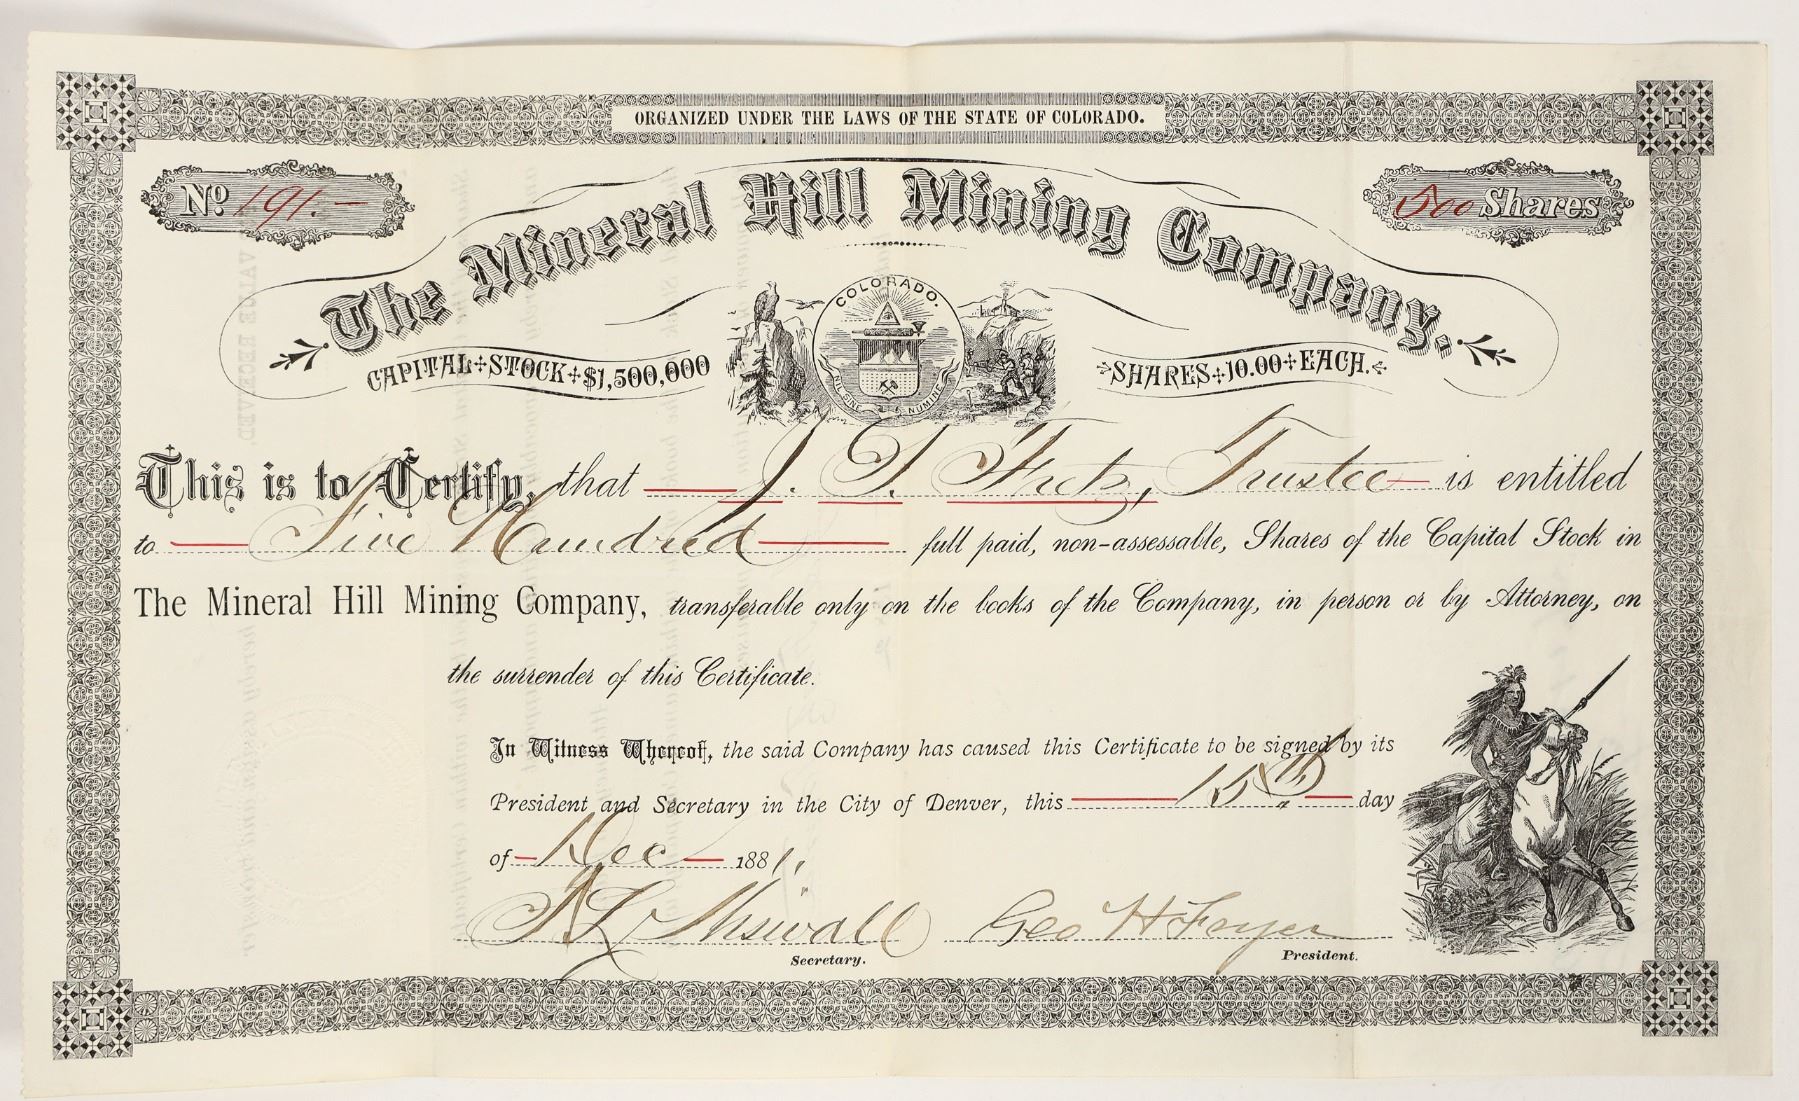 ORGANIZED UNDER THE LAWS OF THE STATE OF COLORADO.
No 191.—
500 Shares
The Mineral Hill Mining Company.
CAPITAL STOCK $1,500,000
SHARES 10.00 EACH.
COLORADO.
NIL SINE NUMINE
This is to Certify, that J. S. Fretz, Trustee is entitled
to Five Hundred full paid, non-assessable, Shares of the Capital Stock in
The Mineral Hill Mining Company, transferable only on the books of the Company, in person or by Attorney, on
the surrender of this Certificate.
In Witness Whereof, the said Company has caused this Certificate to be signed by its
President and Secretary in the City of Denver, this 15th day
of Dec 1881.
Geo H Fryer
Secretary.
President.